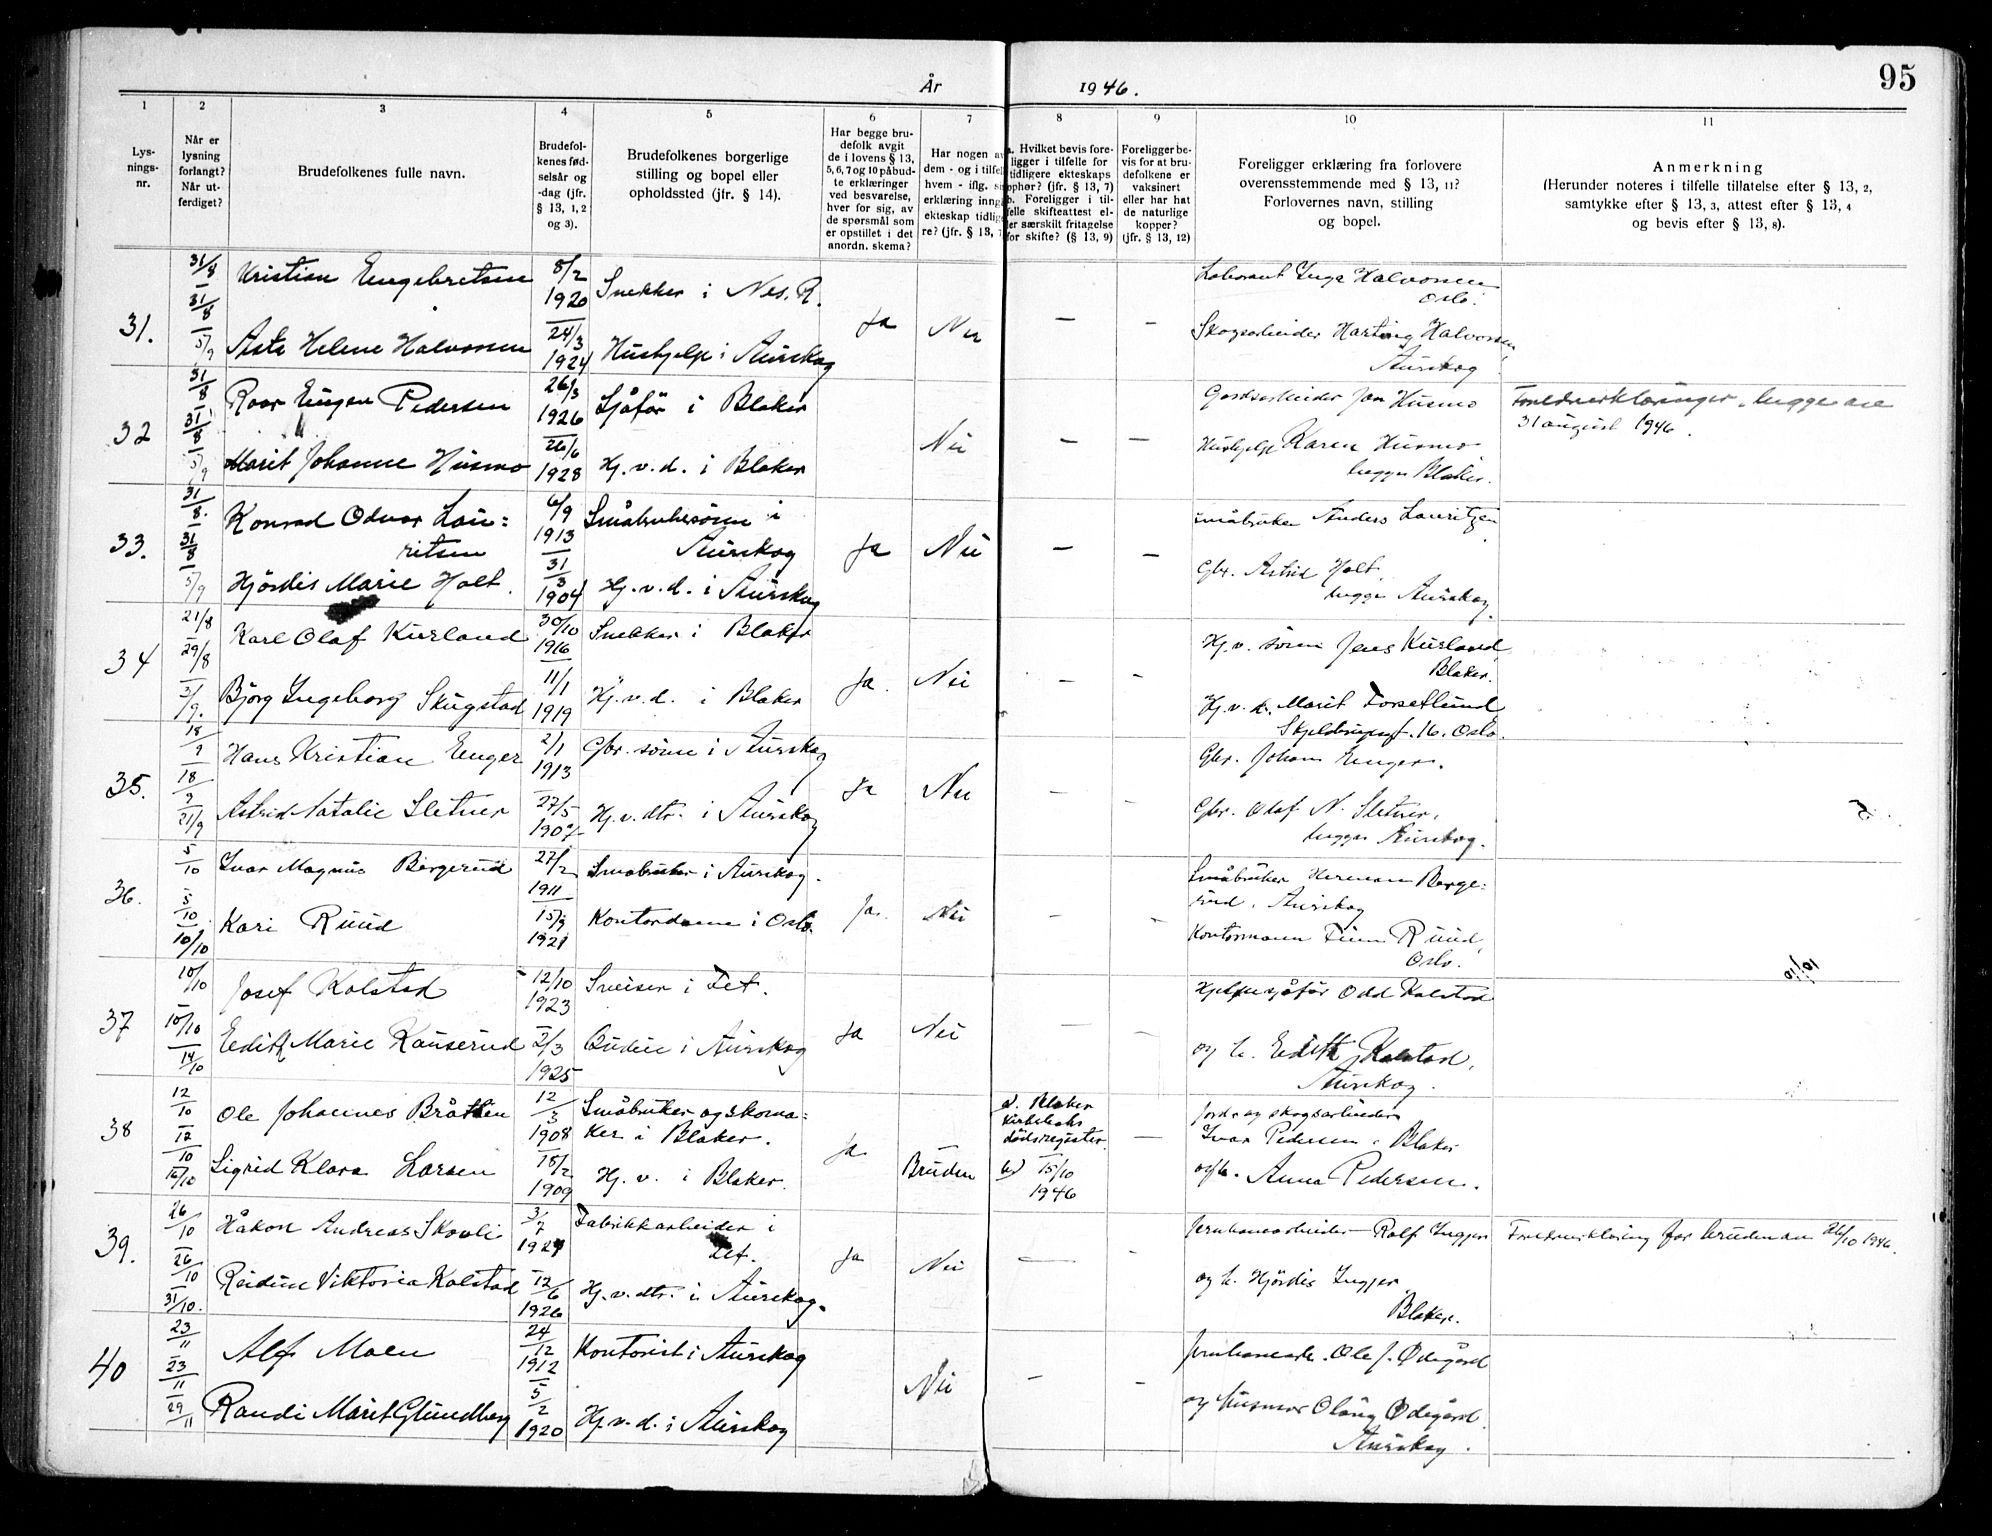 95
År 1946.
1
2
3
4
5
6
7
8
9
10
11
Lys-
nings-
nr.
Når er
lysning
forlangt?
Når ut-
ferdiget?
Brudefolkenes fulle navn.
Brudefol-
kenes fød-
selsår og
-dag (jfr.
§ 13, 1, 2
og 3).
Brudefolkenes borgerlige
stilling og bopel eller
opholdssted (jfr. § 14).
Har begge bru-
defolk avgit
de i lovens § 13,
5, 6, 7 og 10 påbud-
te erklæringer
ved besvarelse,
hver for sig, av
de spørsmål som
er opstillet i det
anordn. skema?
Har nogen av
dem - og i tilfelle
hvem - iflg. 
erklæring inng
ekteskap tidlig
re? (jfr. § 13,
a. Hvilket bevis fore-
ligger i tilfelle for
tidligere ekteskaps
ophør? (jfr. § 13, 7)
b. Foreligger i til-
felle skifteattest el-
ler særskilt fritagelse
for skifte? (§ 13, 9)
Foreligger be-
vis for at bru-
defolkene er
vaksinert
eller har hat
de naturlige
kopper?
(jfr. § 13, 12)
Foreligger erklæring fra forlovere
overensstemmende med § 13, 11?
Forlovernes navn, stilling
og bopel.
Anmerkning
(Herunder noteres i tilfelle tillatelse efter § 13, 2,
samtykke efter § 13, 3, attest efter § 13, 4
og bevis efter § 13, 8).
31.
31/8
31/8
5/9
Kristian Engebretsen 8/2 1920 Snekker i Nes. R.
Ja Nei — —
Asta Helene Halvorsen 24/3 1924 Hushjelp i Aurskog
Laborant Inga Halvorsen
Oslo.
Skogsarbeider Harting Halvorsen,
Aurskog
32
31/8
31/8
5/9
Roar Eugen Pedersen 26/3 1926 Sjåfør i Blaker
Nei — —
Marit Johanne Husmo 26/6 1928 Hj.v.d. i Blaker
Gardsarbeider Jan Husmo
Hushjelp Karen Husmo
begge Blaker.
Foreldreerklæringer, begge av
31 august 1946.
33.
31/8.
31/8
5/9
Konrad Odvar Lau=
ritsen 6/9 1913 Småbrukersønn i
Aurskog Ja Nei — —
Hjördis Marie Holt. 31/3 1904 Hj.v.d. i Aurskog
småbruker Anders Lauritzen
Gbr. Astrid Holt,
begge Aurskog
34
21/8
29/8
3/9.
Karl Olaf Kurland 30/10 1916 Snekker i Blaker
Ja. Nei — -
Björg Ingeborg Skugstad 11/1 1919 Hj.v.d. i Blaker
Hj.v. sönn Jens Kurland
Blaker.
Hj.v.d. Marit Forsetlund
16. Oslo.
35.
18/9
18/9
21/9
Hans Kristian Enger 2/1 1913 Gbr. sönn i Aurskog
Ja Nei — -
Astrid Natalie Sletner 27/5 1907 Hj.v.dtr. i Aurskog
Gbr. Johan Enger.
Gbr. Olaf N. Sletner,
begge Aurskog.
36.
5/10
5/10
10/10
Ivar Magnus Bergerud 27/2 1911 Småbruker i Aurskog.
Ja. Nei — -
Kari Ruud 15/3 1921 Kontordame i Oslo.
Småbruker Herman Berge=
rud. Aurskog
Kontormann Finn Ruud,
Oslo.
37
10/10
10/10
14/10
Josef Kolstad 12/10 1923 Sveiser i Fet.
Ja Nei — -
Edith Marie Kauserud 2/3 1925 Budeie i Aurskog
Hjelpesjåför Odd Kolstad
og h. Edith Kolstad,
Aurskog.
10/10
38
12/10
12/10
16/10
Ole Johannes Bråthen 12/3 1908 Småbruker og skoma=
ker i Blaker.
Ja Bruden
a. Blaker
kirkeboks
dödsregister.
b) 15/10
1946
—
Sigrid Klara Larsen 15/2 1909 Hj.v. i Blaker.
Jord- og skogsarbeider
Ivar Pedersen, Blaker
og h. Anna Pedersen.
39.
26/10
26/10
31/10.
Håkon Andreas Skovli 3/7 1921 Fabrikkarbeider i
Fet. Ja Nei — -
Reidun Viktoria Kolstad 12/6 1926 Hj.v.dtr. i Aurskog.
Jernbanearbeider Rolf Ingjer
og h. Hjördis Ingjer,
Blaker.
Foreldreerklæring for bruden av 26/10 1946.
40
23/11
23/11
29/11
Alf Moen 24/12 1912 Kontorist i Aurskog
Nei — -
Randi Marit Glundberg 5/2 1920 Hj.v.d. i Aurskog
Jernbanearb. Ole J. Ødegård
og husmor Olaug Ødegård.
Aurskog.